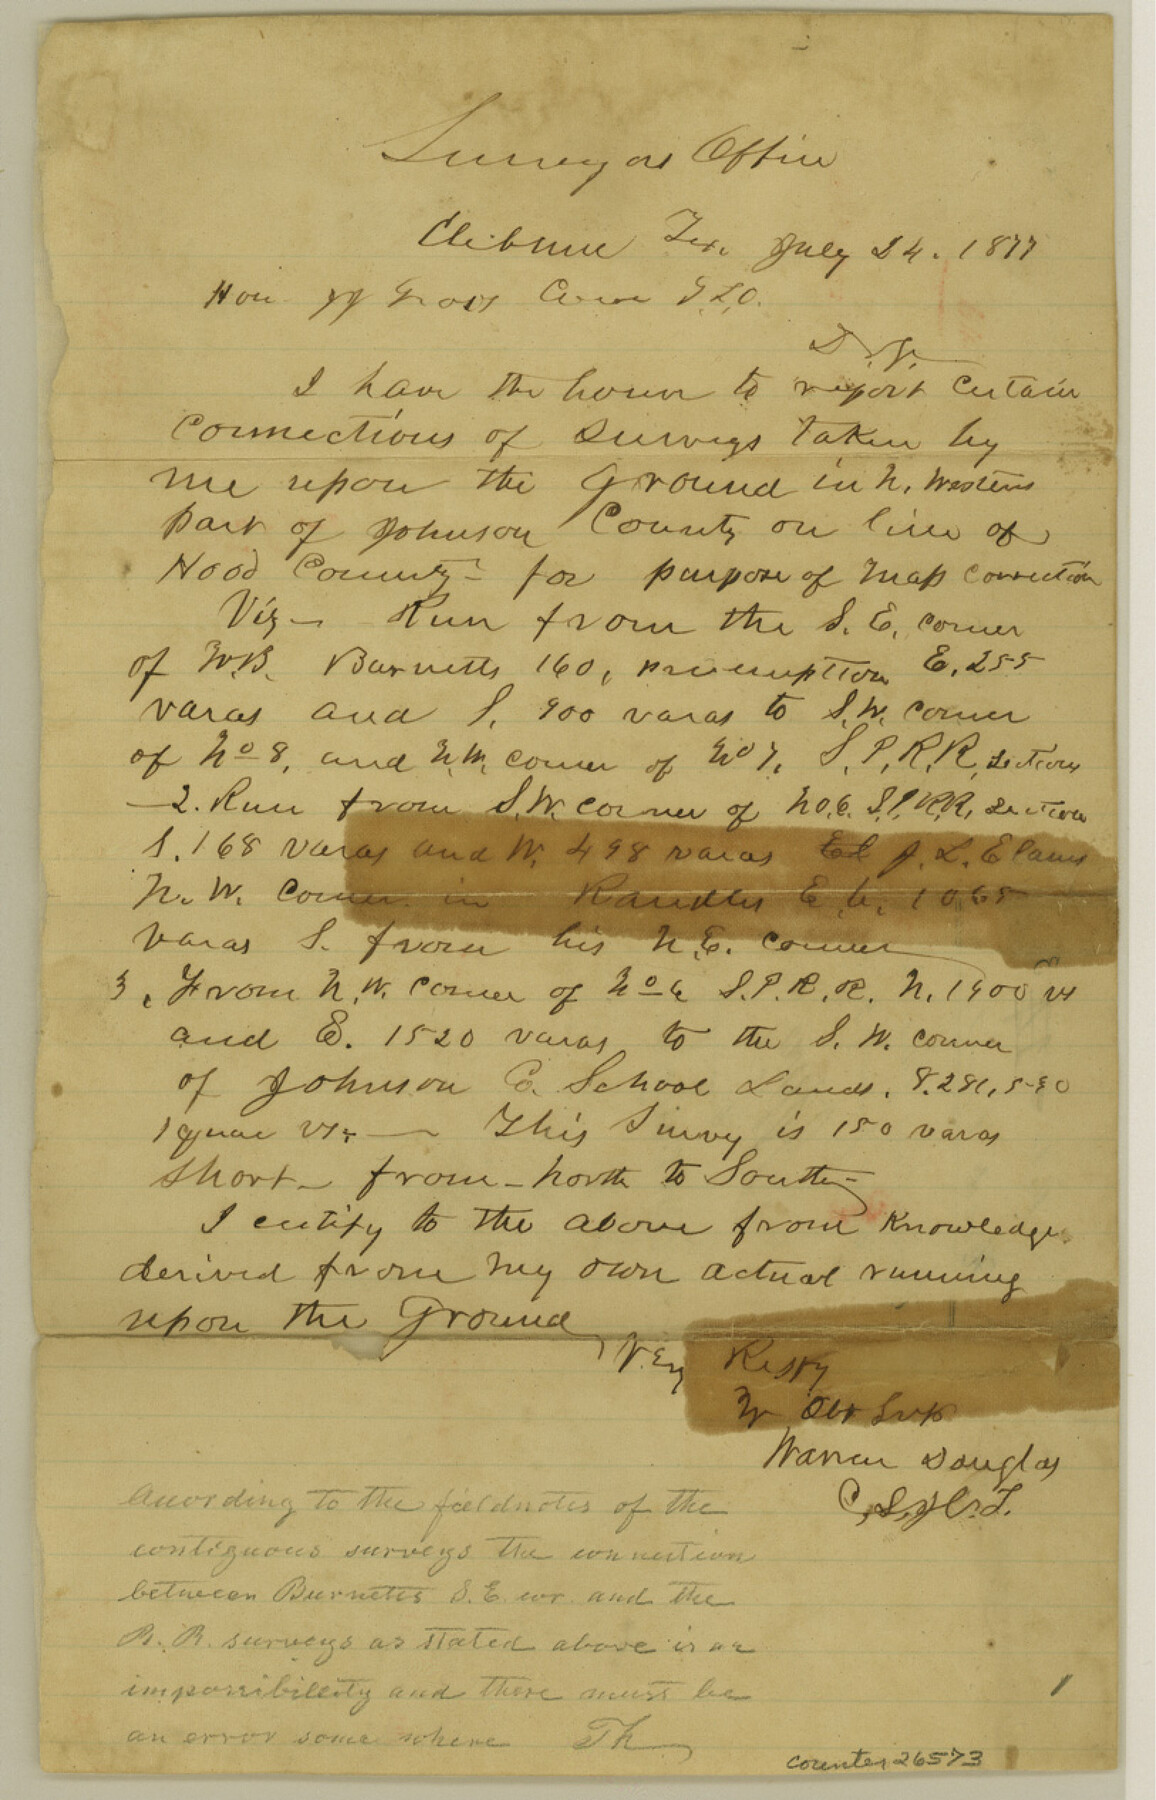 Surveyors Office
Clibune Tex. July 24. 1877
Hon JJ Gross Com G.L.O.
D. S.
I have the honor to report certain
connections of surveys taken by
me upon the Ground in N. Western
part of Johnson County on line of
Hood County - for purpose of map correction
Viz - Run from the S. E. corner
of W.B. Burnetts 160, preemption E. 255
varas and S. 900 varas to S.W. corner
of No 8, and N.W. corner of No 7, S.P.R.R. Sections
-2. Run from S.W. corner of No. 6 S.P.R.R. Section
S. 168 varas and W. 498 varas J. L. Elams
N. W. Corner in Randles E. L. 1065
varas S. from his N.E. corner
3. From N.W. corner of No 6 S.P.R.R. N. 1900 vs
and E. 1520 varas to the S. W. corner
of Johnson Co. School Lands.
square vs. - This Survey is 150 varas
short - from - north to South -
I certify to the above from Knowledge
derived from my own actual running
upon the Ground
Very Respy
Yr Obt Svt
Warren Douglas
C.S.J.Co.T.
According to the fieldnotes of the
contiguous surveys the connection
between Burnetts S.E. cor. and the
R. R. surveys as stated above is an
impossibility and there must be
an error some where Th
1
counter 26573